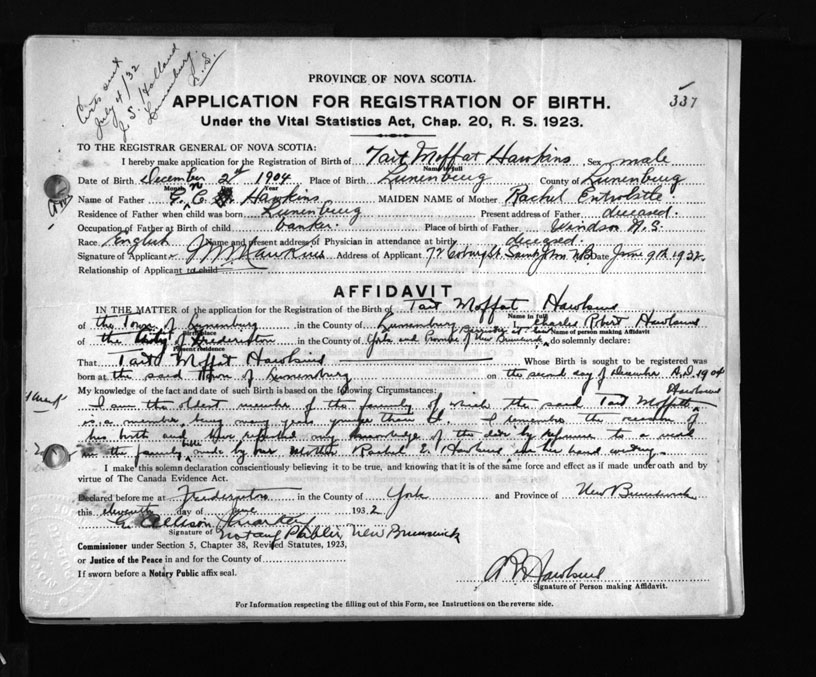 Certs sent
July 4/32
J. S. Holland
Lunenburg
N.S.
337
PROVINCE OF NOVA SCOTIA.
APPLICATION FOR REGISTRATION OF BIRTH.
Under the Vital Statistics Act, Chap. 20, R. S. 1923.
TO THE REGISTRAR GENERAL OF NOVA SCOTIA:
I hereby make application for the Registration of Birth of Tait Moffat Hawkins Sex male
Name in full
Date of Birth December 2nd 1904 Place of Birth Lunenburg County of Lunenburg
Month Year
Name of Father G. C. Hawkins MAIDEN NAME of Mother Rachel
Residence of Father when child was born Lunenburg Present address of Father deceased.
Occupation of Father at Birth of child banker. Place of birth of Father Windsor N.S.
Race English Name and present address of Physician in attendance at birth deceased.
Signature of Applicant Hawkins Address of Applicant 72 Saint John N.B. Date June 9th 1932.
Relationship of Applicant to child
AFFIDAVIT
IN THE MATTER of the application for the Registration of the Birth of Tait Moffat Hawkins
Name in full
of the Town of Lunenburg in the County of Lunenburg Charles Robert Hawkins
Birthplace Name of person making Affidavit
of the City of Fredericton in the County of York and Province of New Brunswick, do solemnly declare:
Present residence
That Tait Moffat Hawkins Whose Birth is sought to be registered was
born at the said Town of Lunenburg on the second day of December A.D. 1904
My knowledge of the fact and date of such Birth is based on the following Circumstances:
I am the oldest member of the family of which the said Tait Moffatt Hawkins
is a member, being many years younger than I. I remember the occasion of
his birth and have refreshed my knowledge of the date by reference to a
in the family bible made by our Mother Rachel E. Hawkins in her hand writing.
I make this solemn declaration conscientiously believing it to be true, and knowing that it is of the same force and effect as if made under oath and by
virtue of The Canada Evidence Act.
Declared before me at Fredericton in the County of York and Province of New Brunswick
this eleventh day of June 1932
Allison
Signature of Notary Public, New Brunswick
Commissioner under Section 5, Chapter 38, Revised Statutes, 1923,
or Justice of the Peace in and for the County of
If sworn before a Notary Public affix seal.
Hawkins
Signature of Person making Affidavit.
For Information respecting the filling out of this Form, see Instructions on the reverse side.